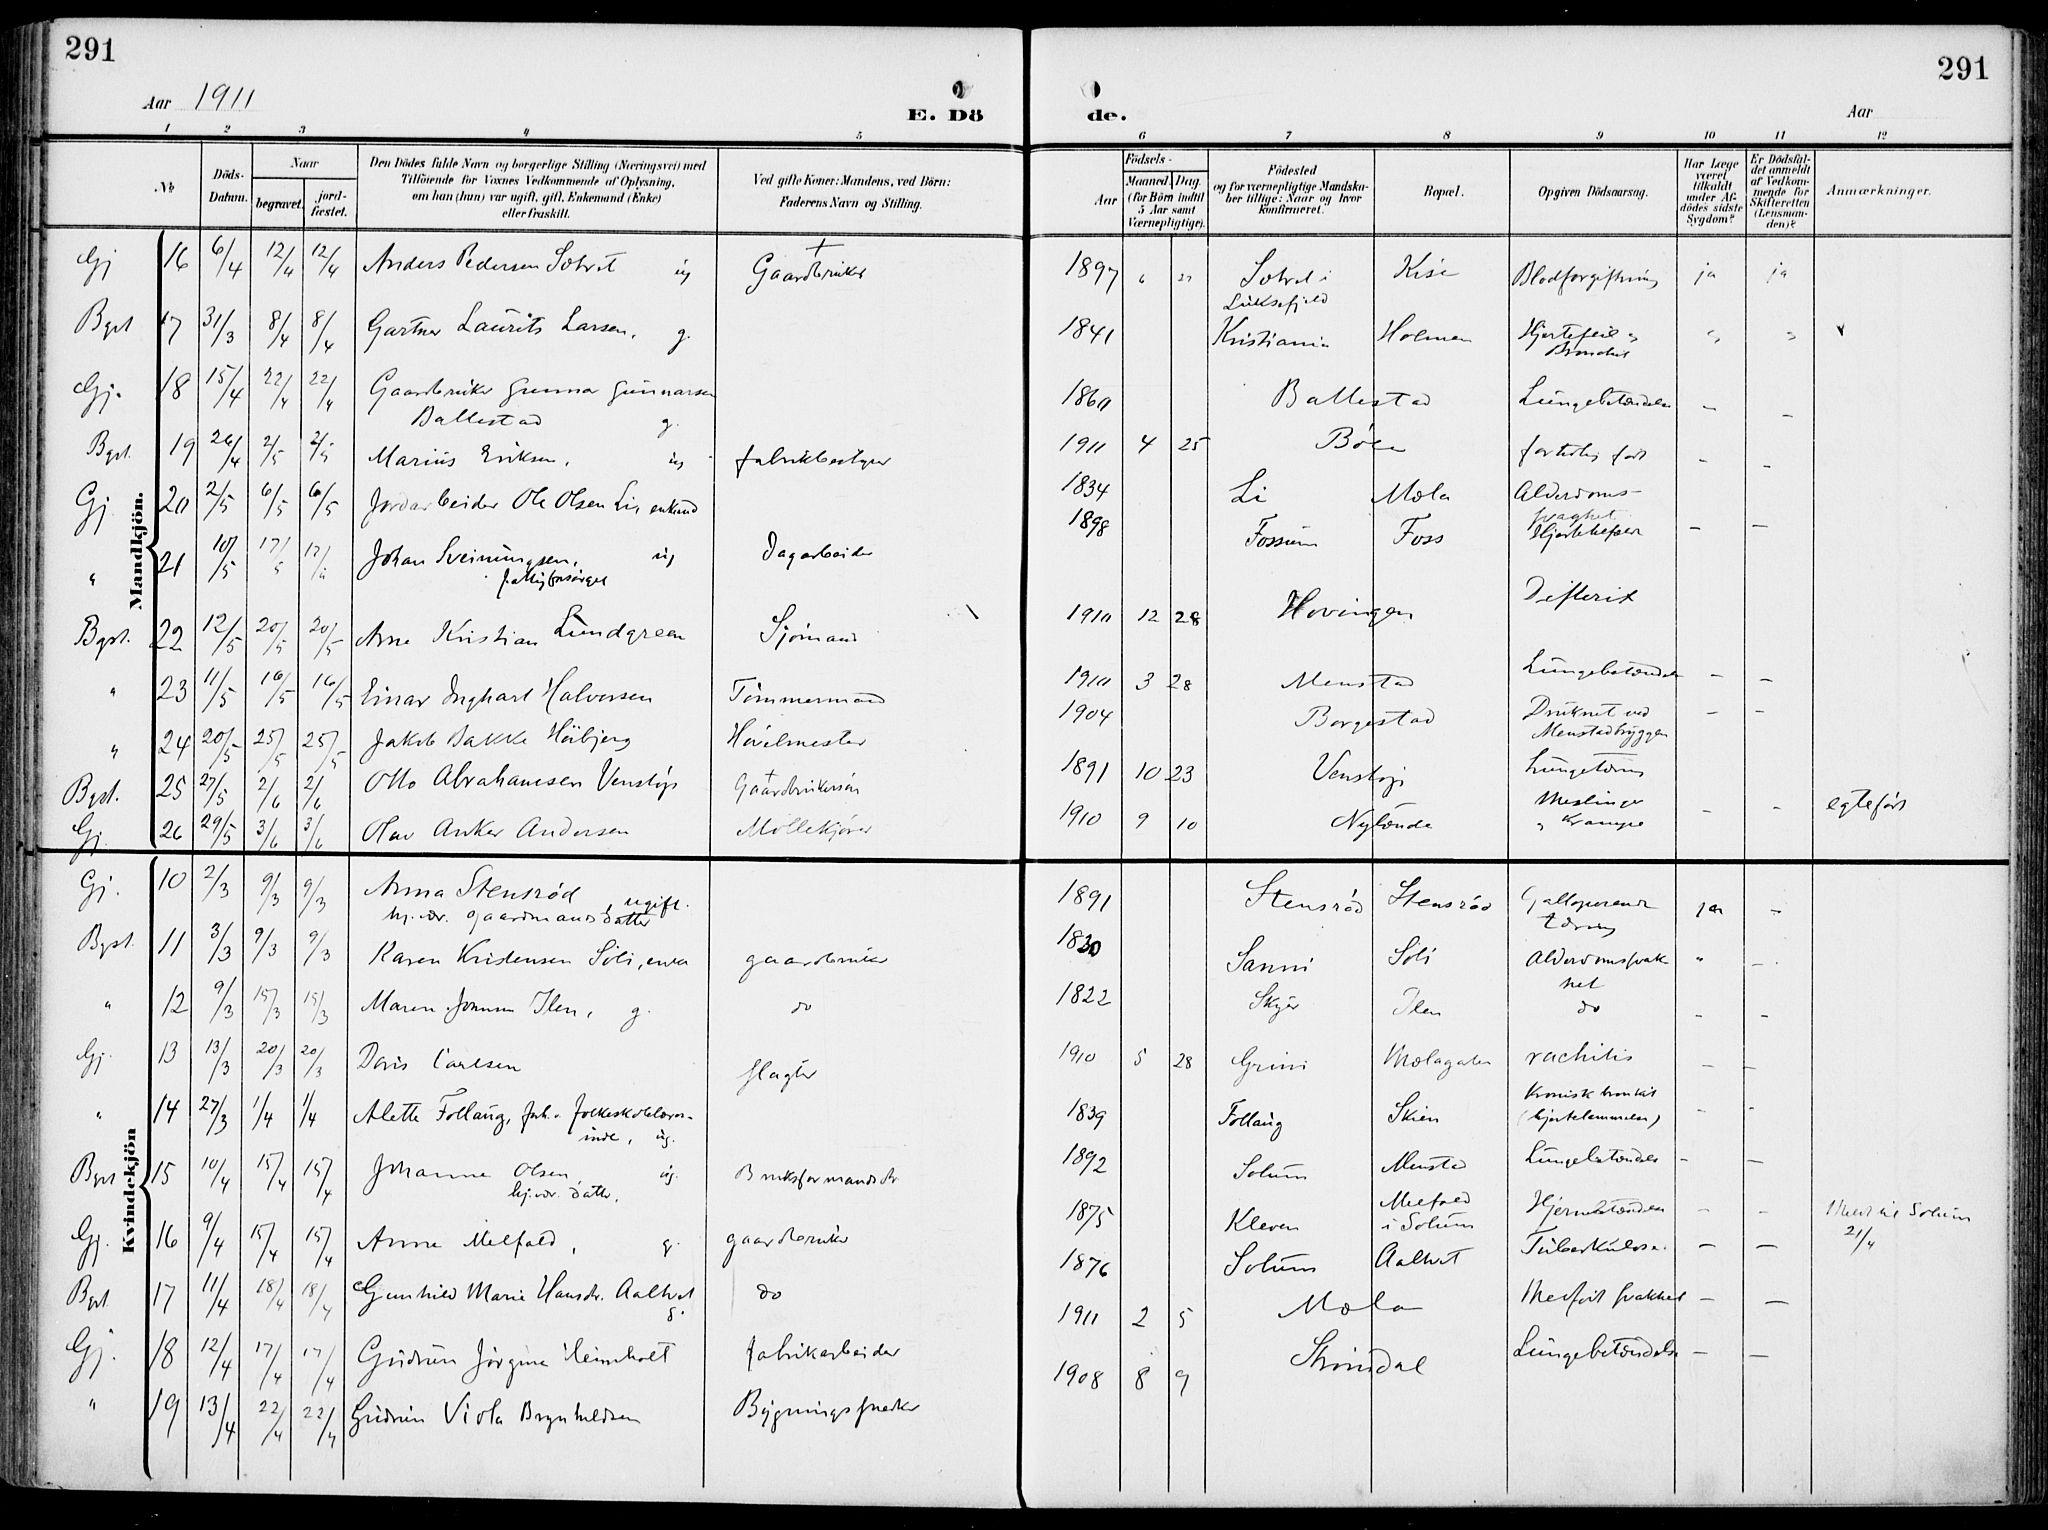 291
291
Aar 1911
E. Dö
de.
Aar
1 2 3 4 5 6 7 8 9 10 11 12
№
Döds-Datum.
Naar
begravet.
jord-fæstet.
Den Dödes fulde Navn og borgerlige Stilling (Næringsvei) med
Tilföiende för Voxnes Vedkommende af Oplysning,
om han (hun) var ugift, gift, Enkemand (Enke)
eller fraskilt.
Ved gifte Koner: Mandens, ved Börn:
Faderens Navn og Stilling.
Födsels-
Aar
Maaned. Dag.
(for Börn indtil
5 Aar samt
Værnepligtige).
Födested
og for værnepligtige Mandska-
ber tillige: Naar og hvor
konfirmeret.
Bopæl.
Opgiven Dödsaarsag.
Har Læge
været
tilkaldt
under Af-
dödes sidste
Sygdom?
Er Dödsfal-
det anmeldt
af Vedkom-
mende for
Skifteretten
(Lensman-
den)?
Anmærkninger.
Mandkjön.
Gj 16 6/4 12/4 12/4 Anders Pedersen ug Gaardbruker 1897 6 Kise Blodforgiftning ja ja
Luksefjeld
Bgst 17 31/3 8/4 8/4 Gartner Laurits Larsen, g. 1841 Kristiania Holmen Hjertefeil
Gj. 18 15/4 22/4 22/4 Gaardbruker Gunnar Gunnarsen 1860 Ballestad Lungebetændelse – –
Ballestad g.
Bgst. 19 26/4 2/5 2/5 Marius Eriksen, ug fabrikbestyrer 1911 4 25 Böle fortidlig født – –
Gj 20 2/5 6/5 6/5 Jordarbeider Ole Olsen Li, enkmd 1834 Li Mæla Alderdoms-
svaghet
" 21 10/5 17/5 17/5 Johan Sveinungsen, ug Dagarbeider 1898 Fossum Foss – –
Bgst. 22 12/5 20/5 20/5 Arne Kristian Lundgreen Sjømand 1910 12 28 Hovingen Difterit
" 23 11/5 16/5 16/5 Einar Inghart Halvorsen Tömmermand 1910 3 28 Menstad Lungebetændelse – –
" 24 20/5 25/5 25/5 Jakob Bakke Höibjerg Hövelmester 1904 Borgestad Druknet ved – –
Menstadbryggen
Bgst. 25 27/5 2/6 2/6 Otto Abrahamsen Venstøp Gaardbrukersön 1891 10 23 Venstøp
Gj. 26 29/5 3/6 3/6 Olav Anker Andersen Møllekjører 1910 9 10 Nylænde Meslinger – – egtefødt
Krampe
Kvindekjön
Gj. 10 2/3 9/3 9/3 Anna Stensrød, ugift. 1891 Stensrød Stensrød Galloperende ja –
hj.vær. gaardmandsdatter tæring
Bgst. 11 3/3 9/3 9/3 Karen Kristensen Søli, enke gaardbruker 1830 Sanni Søli Alderdomssvak " –
het
" 12 9/3 15/3 15/3 Maren Ilen, g. do 1822 Ilen do – –
Gj. 13 13/3 20/3 20/3 Doris Carlsen slagter 1910 5 28 Grini Mælagaten rachitis – –
" 14 27/3 1/4 1/4 Alette Follaug, forh. folkeskolelærer- 1839 Follaug Skien Kronisk bronkit
inde, ug. (hjertelammelse)
Bgst 15 10/4 15/4 15/4 Johanne Olsen ug. Bruksformandsdr 1892 Solum Menstad Lungebetændelse – –
hj.vær. datter.
Gj. 16 9/4 15/4 15/4 Anne Melfald, g. gaardbruker 1875 Kleven Melfald – – 
i Solum Solum
21/4
Bgst 17 11/4 18/4 18/4 Gunhild Marie Hansdr. Aaltvet do 1876 Solum Aaltvet Tuberkulose. – –
g.
Gj. 18 12/4 17/4 17/4 Gudrun Jörgine Heimholt fabrikarbeider 1911 2 5 Mæla Medfødt svakhet – –
" 19 13/4 22/4 22/4 Gudrun Viola Brynhildsen Bygningssnedker 1908 8 9 Strömdal Lungebetændelse – –